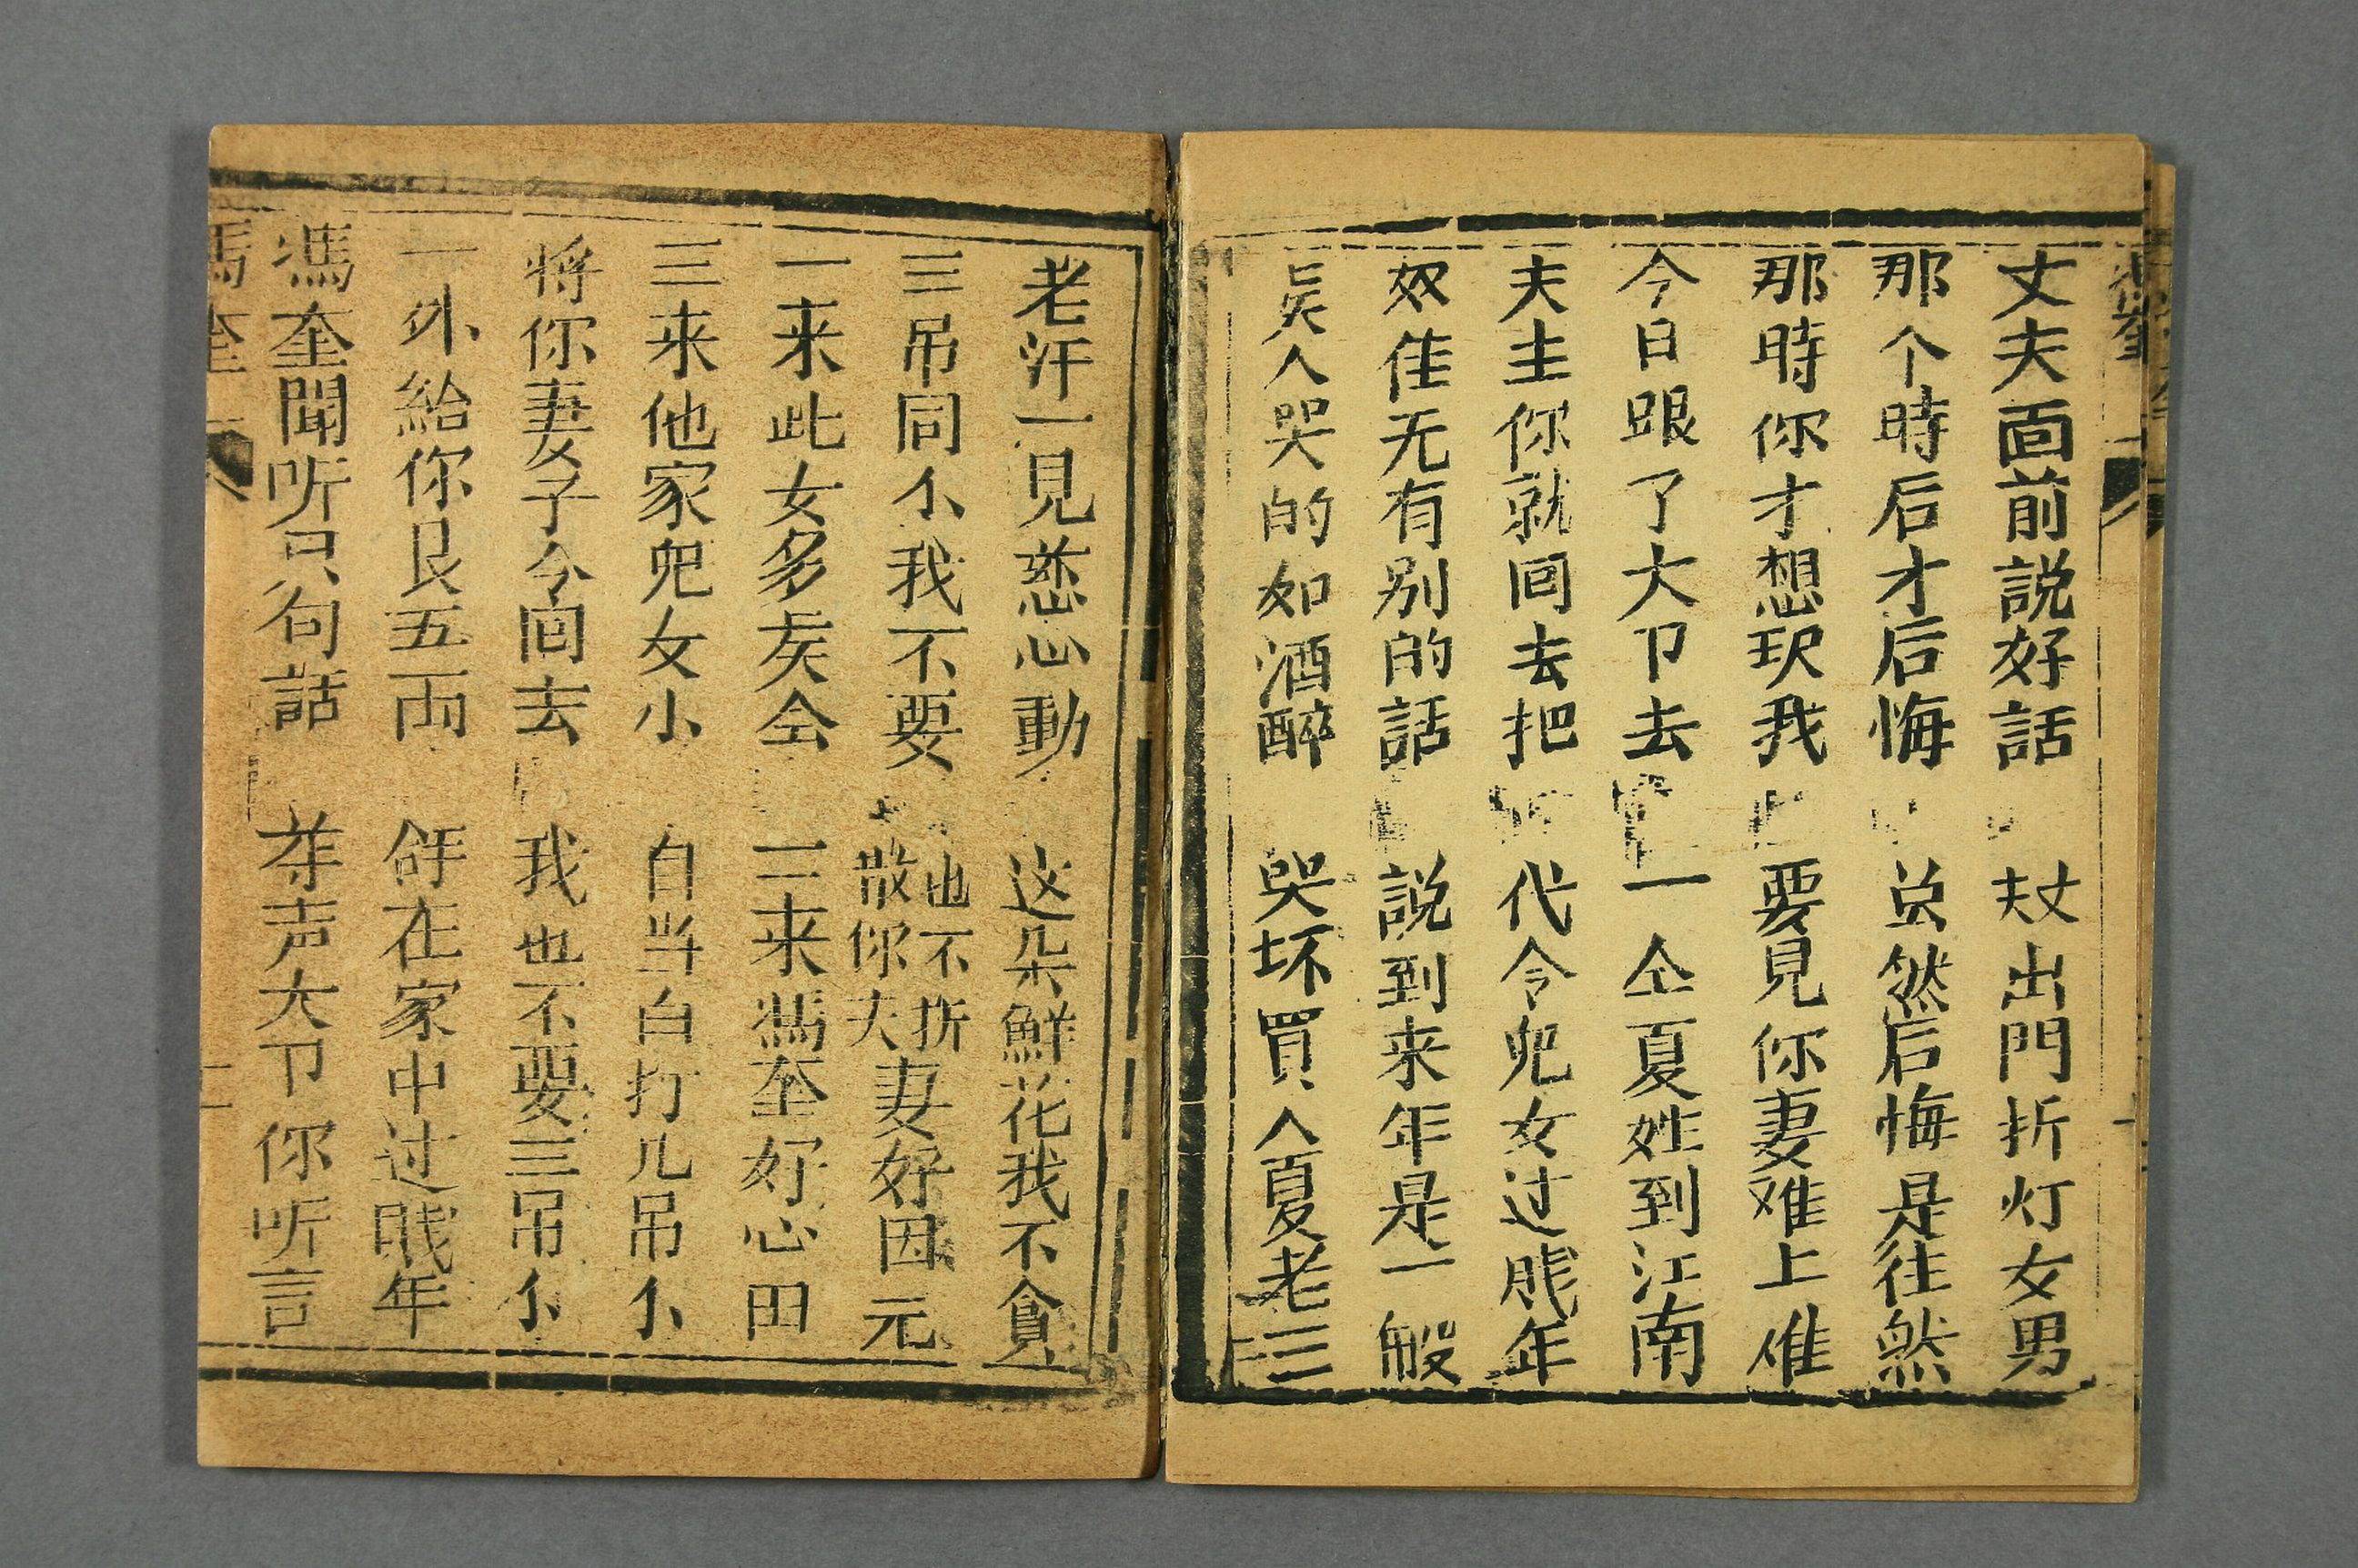 丈夫面前説好話 丈夫出門折灯女男
那个時后才后悔 总然后悔是徃然
那時你才想玞我 要見你妻难上难
今日跟了大卩去 一仝夏姓到江南
夫主你就囬去把 代令児女过年
奴佳无有别的話 説到来年是一般
吴人哭的如酒醉 哭坏買人夏老三
老汗一見慈心動 这朵鮮花我不貪
三吊同小我不要 也不折散你夫妻好因元
一来此女多矣仝 二来馮奎好心田
三来他家児女小 自当白打几吊小
将你妻子令囬去 我也不要三吊小
一外給你艮五両 好在家中过年
馮奎聞听只句話 声大卩你听言
馮奎